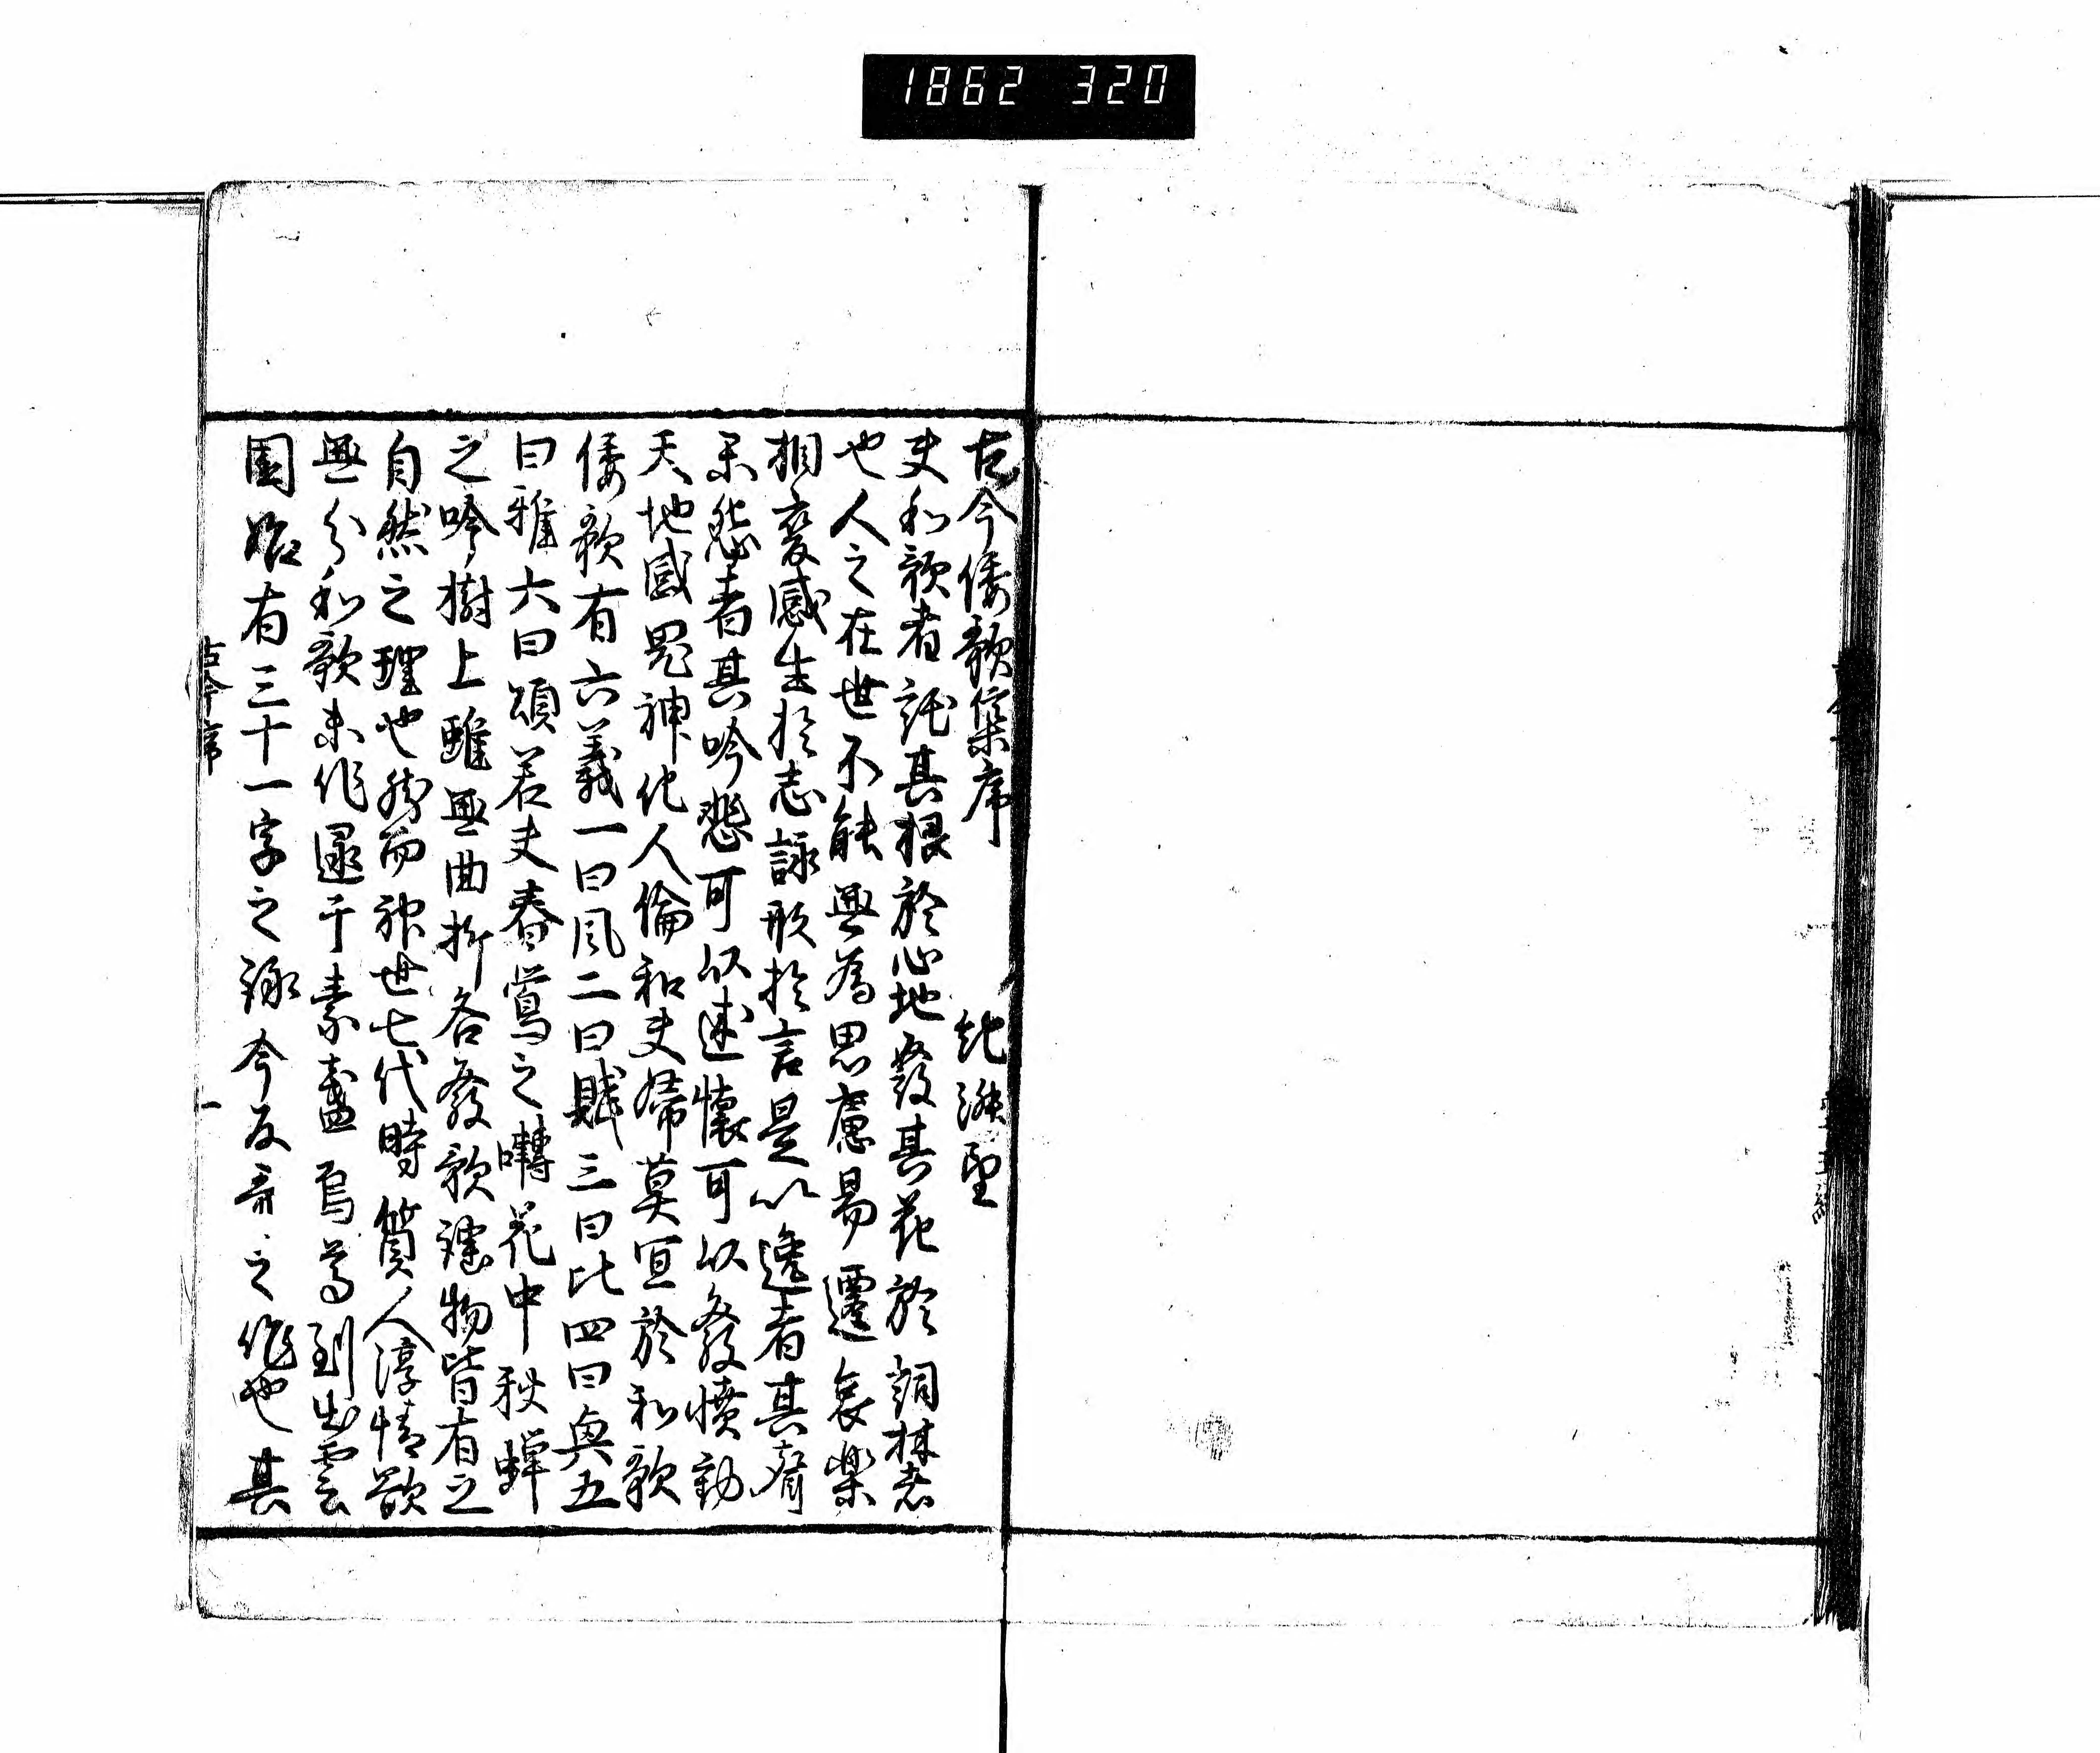 1862 320
古今倭歌集序　紀淑望
夫和歌者託其根於心地發其花於詞林者
也人之在世不能無為思慮易遷哀樂
相變感生於志詠形於言是以逸者其聲
楽怨者其吟悲可以述懐可以發憤動
天地感鬼神化人倫和夫婦莫宜於和歌
倭歌有六義一曰風二曰賦三曰比四曰興五
曰雅六曰頌若夫春鶯之囀花中秋蟬
之吟樹上雖無曲折各發歌謠物皆有之
自然之理也然而神世七代時質人淳情欲
無分和歌未作逮于素盞烏尊到出雲
國始有三十一字之詠今反哥之作也其
古今序
一